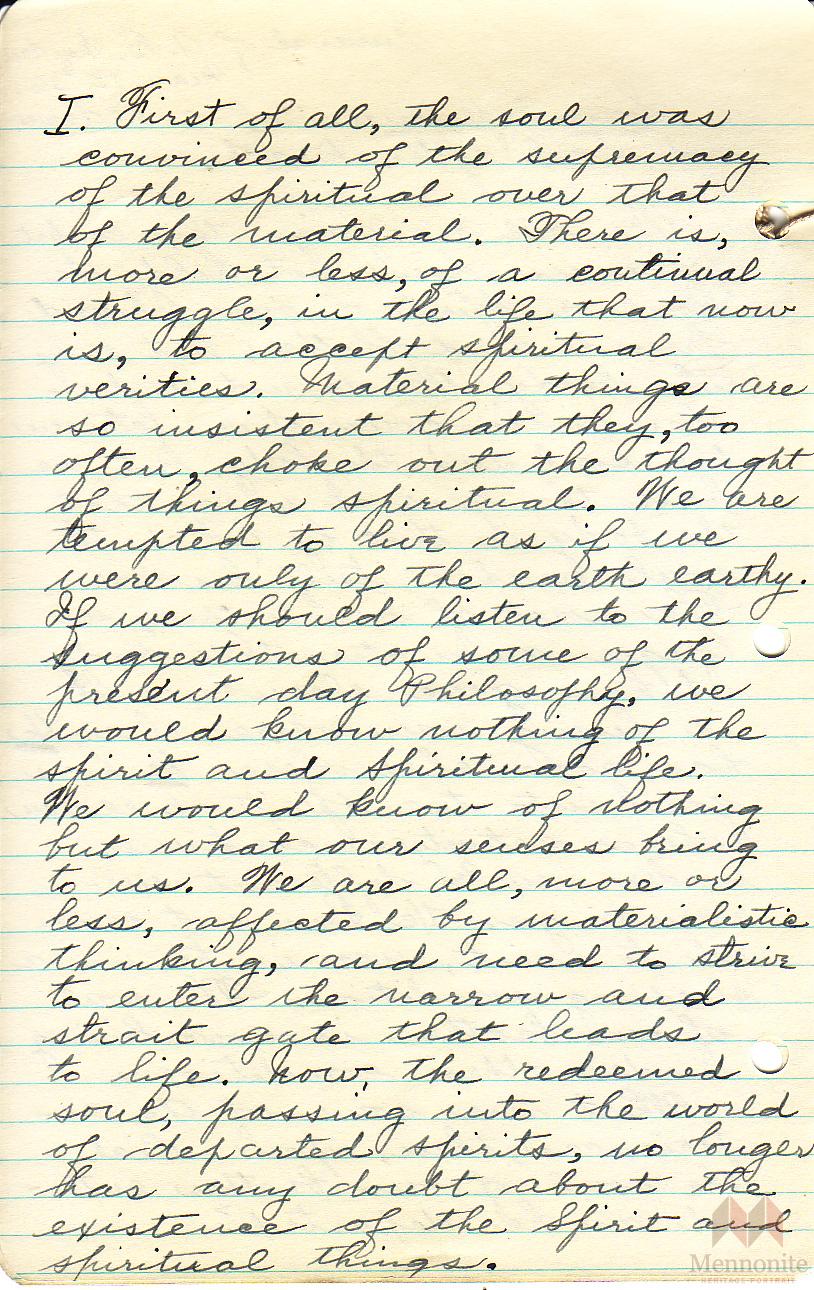 I. First of all, the soul was
convinced of the supremacy
of the spiritual over that
of the material. There is,
more or less, of a continual
struggle, in the life that now
is, to accept spiritual
verities. Material things are
so insistent that they, too
often, choke out the thought
of things spiritual. We are
tempted to live as if we
were only of the earth earthy.
If we should listen to the
suggestions of some of the
present day Philosophy, we
would know nothing of the
spirit and spiritual life.
We would know of nothing
but what our senses bring
to us. We are all, more or
less, affected by materialistic
thinking, and need to strive
to enter the narrow and
strait gate that leads
to life. Now, the redeemed
soul, passing into the world
of departed spirits, no longer
has any doubt about the
existence of the Spirit and
spiritual things.
Mennonite
HERITAGE PORTRAIT